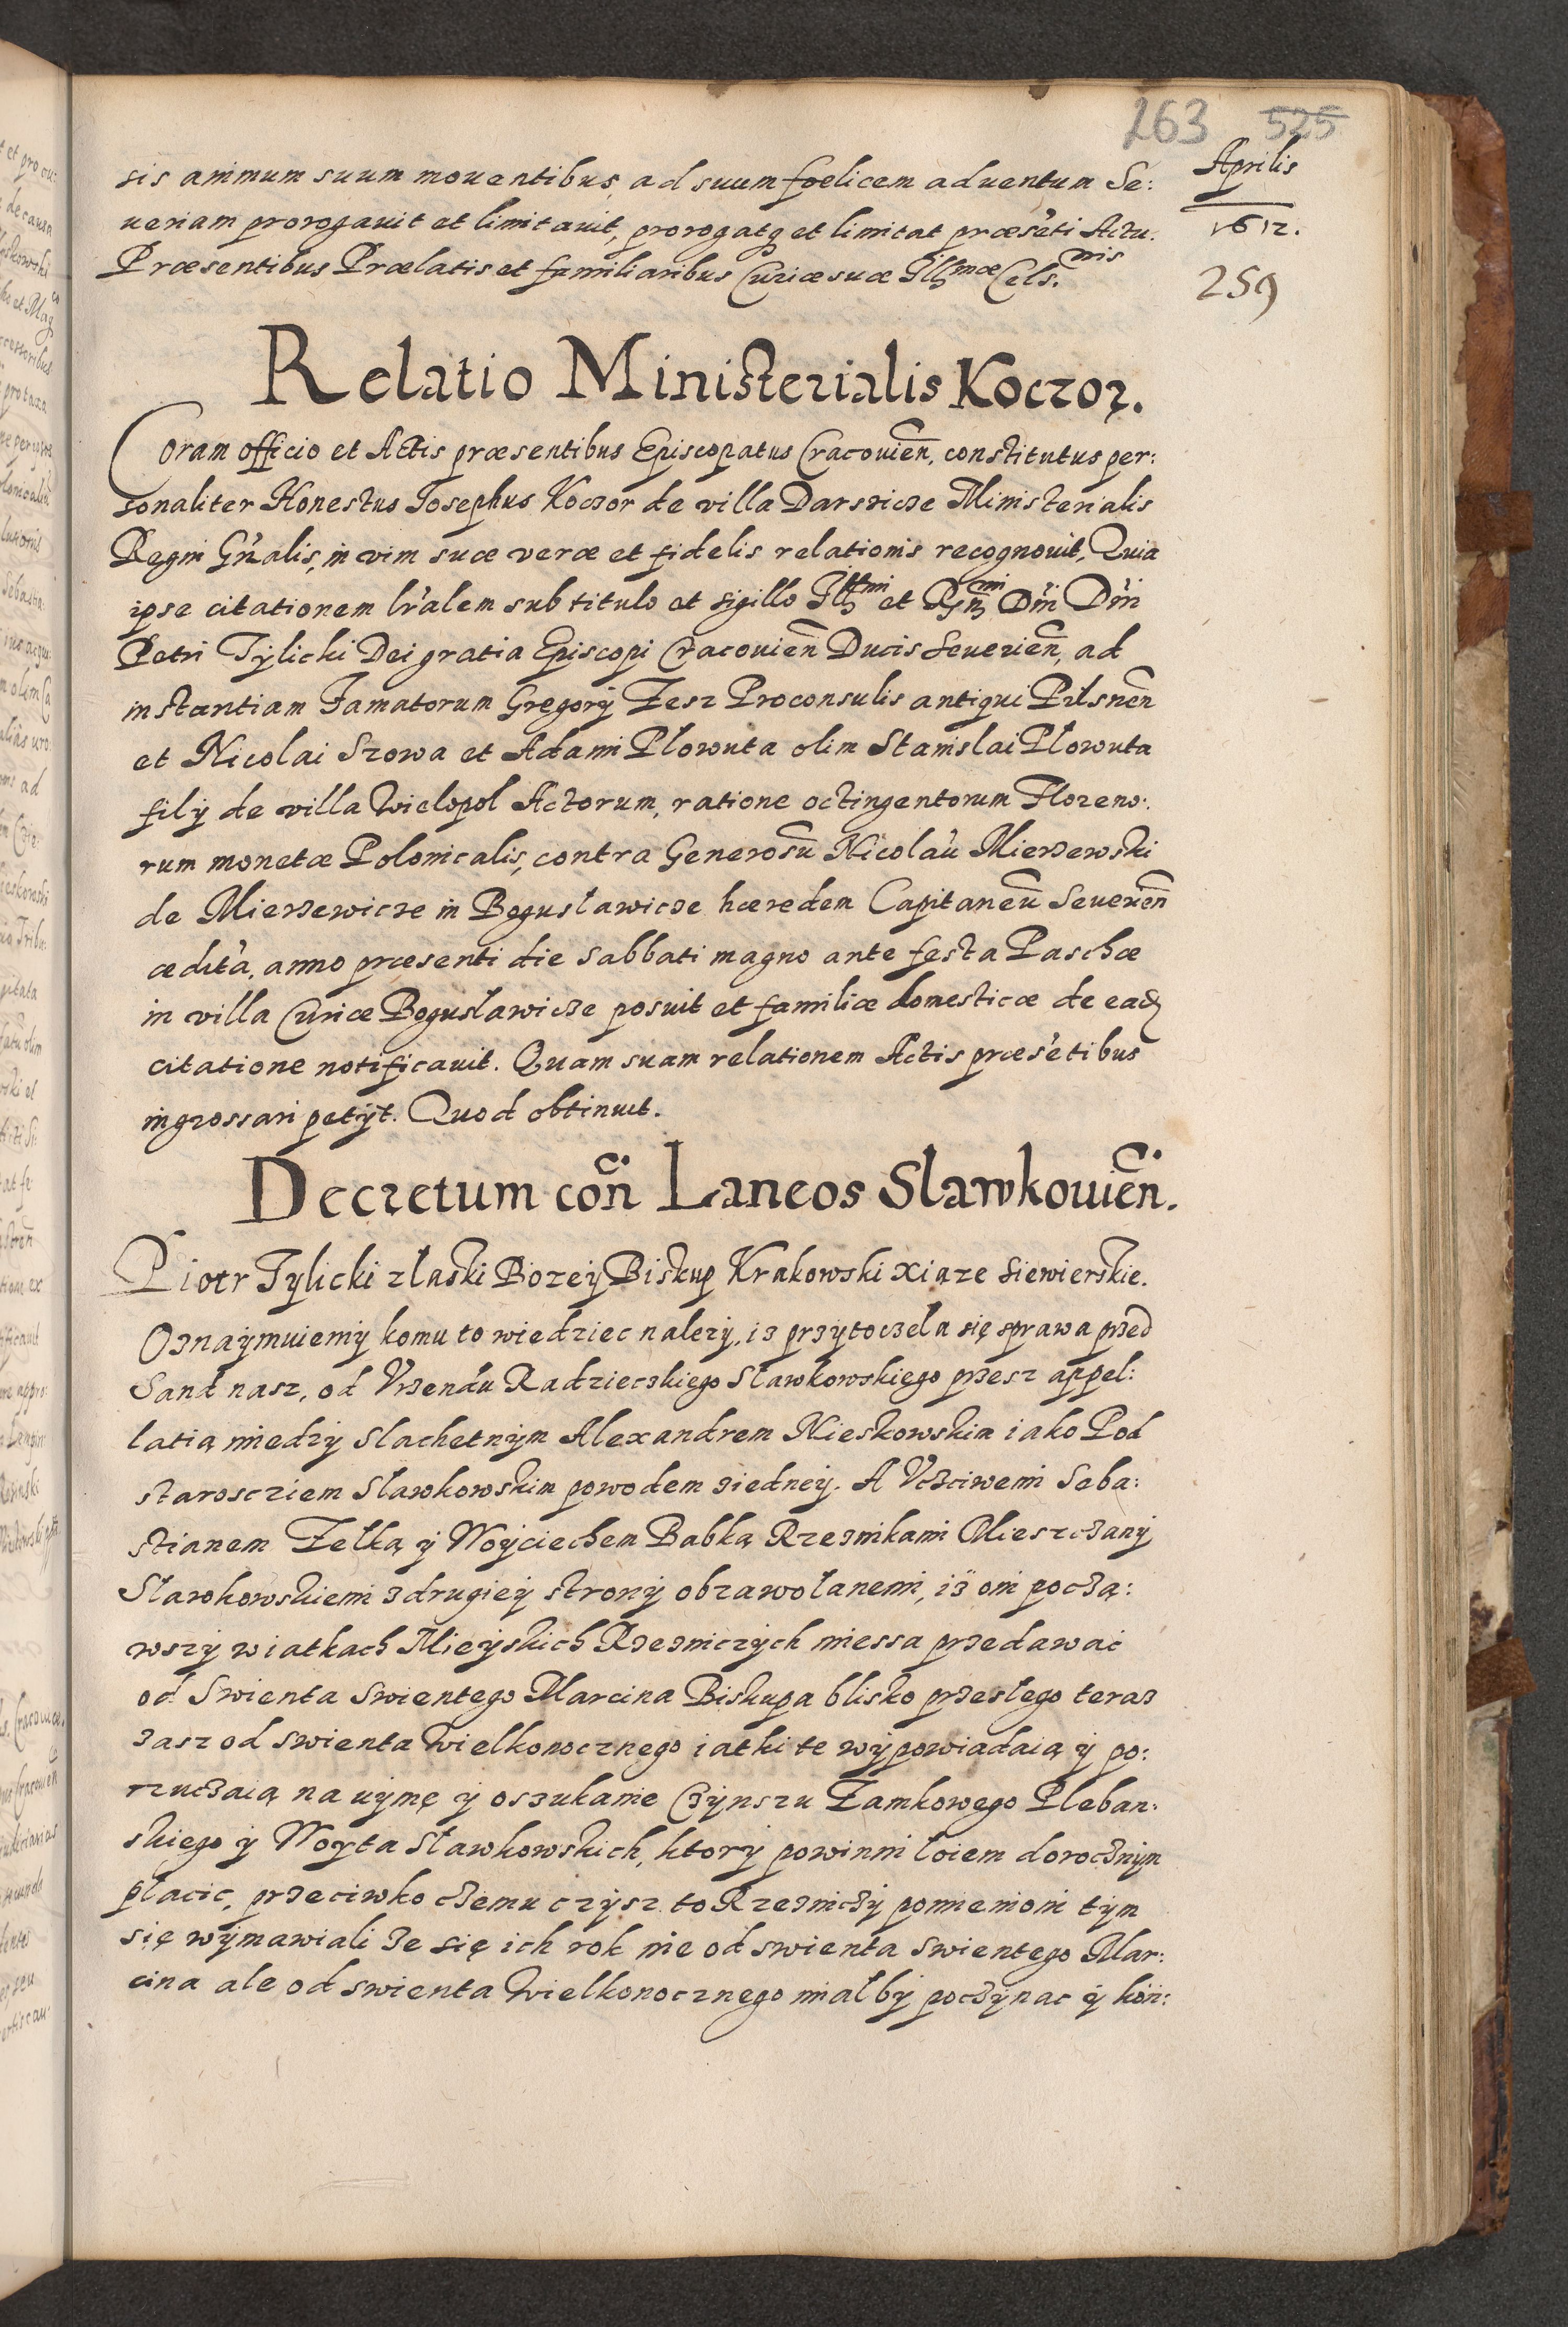 263 525
Aprilis
1612.
259
sis animum suum mouentibus, ad suum foelicem aduentum Se:
ueriam prorogauit et limitauit, prorogatq et limitat præsẽti Actu.
Præsentibus Prælatis et familiaribus Curiæ suæ Illmæ Cels.nis
Relatio Ministerialis Koczor.
Coram officio et Actis præsentibus Episcopatus Cracouieñ, constitutus per:
sonaliter Honestus Josephus Koczor de villa Darszicze Ministerialis
Regni Gñralis, in vim suæ veræ et fidelis relationis recognouit, Quia
ipse citationem lřalem sub titulo et sigillo Illmi et Rñmi Dñi Dñi
Petri Tylicki Dei gratia Episcopi Cracouieñ Ducis Seuerieñ, ad
instantiam Famatorum Gregorij Zesz Proconsulis antiqui Pilsneñ
et Nicolai Szowa et Adami Plowuta olim Stanislai Płowuta
filij de villa Wielopol Actorum, ratione octingentorum Floreno:
rum monetæ Polonicalis, contra Generosũ Nicolaũ Mierzewski
de Mierzewicze in Bogusławicze hæredem Capitaneũ Seuerieñ
æditã, anno præsenti die Sabbati magno ante festa Paschæ
in villa Curiæ Bogusławicze posuit et familiæ domesticæ de eadq
citatione notificauit. Quam suam relationem Actis præsẽtibus
ingrossari petijt. Quod obtinuit.
Decretum coñ Laneos Slawkouieñ.
Piotr Tylicki z łaski Bozey Biskup Krakowski xiąze Siewierskie.
Oznaymuiemy komu to wiedziec nalezy, iz przytoczeła się sprawa przed
Sand nasz, od Vrzendu Radzieczkiego Sławkowskiego przesz appel:
latią miedzy Slachetnym Alexandrem Nieskowskim iako Pod
starosciem Sławkowskim powodem z iedney. A Vcżciwemi Seba:
stianem Zelką y Woyciechem Babką Rzeznikami Mieszcżany
Sławkowskiemi z drugiey strony obzawołanemi, iż oni począ:
wszy w iatkach Mieyskich Rzezniczych miessa przedawac
od Swienta Swientego Marcina Biskupa blisko przesłego teraz
zasz od swienta Wielkonocznego iatki te wypowiadaią y po:
rzuczaią na uymę y oszukanie Czynszu Zamkowego Pleban:
skiego y Woyta Sławkowskich, ktory powinni łoiem dorocznym
płacic, przeciwko czemu czysz to Rzeznicy pomienioni tym
się wymawiali ze się ich rok nie od swienta swientego Mar:
cina ale od swienta Wielkonocznego miał by poczynac y kon: